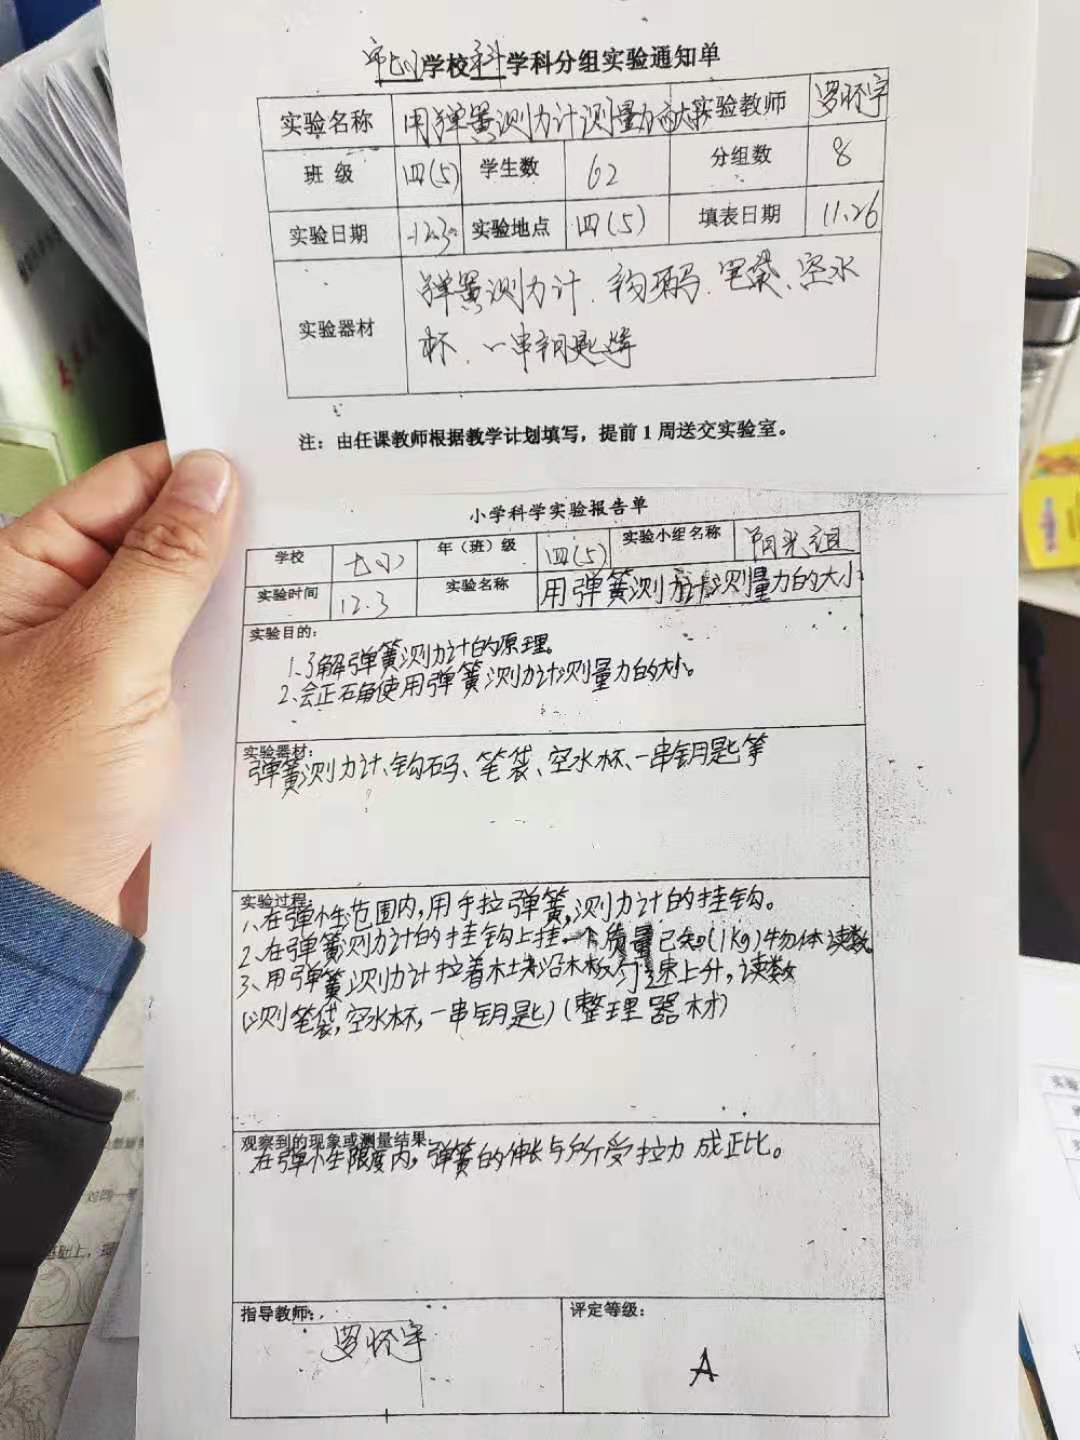 市七小学校科学科分组实验通知单
实验名称 用弹簧测力计测量力的大小 实验教师 罗怀宇
班 级 四(5) 学生数 62 分组数 8
实验日期 12.3 实验地点 四(5) 填表日期 11.26
实验器材 弹簧测力计、钩码、笔袋、空水
杯、一串钥匙等
注：由任课教师根据教学计划填写，提前1周送交实验室。
小学科学实验报告单
学校 七小 年（班）级 四(5) 实验小组名称 阳光组
实验时间 12.3 实验名称 用弹簧测力计测量力的大小
实验目的：
1.了解弹簧测力计的原理。
2、会正确使用弹簧测力计测量力的大小。
实验器材：
弹簧测力计、钩码、笔袋、空水杯、一串钥匙等
实验过程
1、在弹性范围内，用手拉弹簧测力计的挂钩。
2、在弹簧测力计的挂钩上挂一个质量已知(1kg)物体读数。
3、用弹簧测力计拉着木块沿木板匀速上升，读数
(测笔袋，空水杯，一串钥匙)(整理器材)
观察到的现象或测量结果：
在弹性限度内，弹簧的伸长与所受拉力成正比。
指导教师： 评定等级：
罗怀宇 A